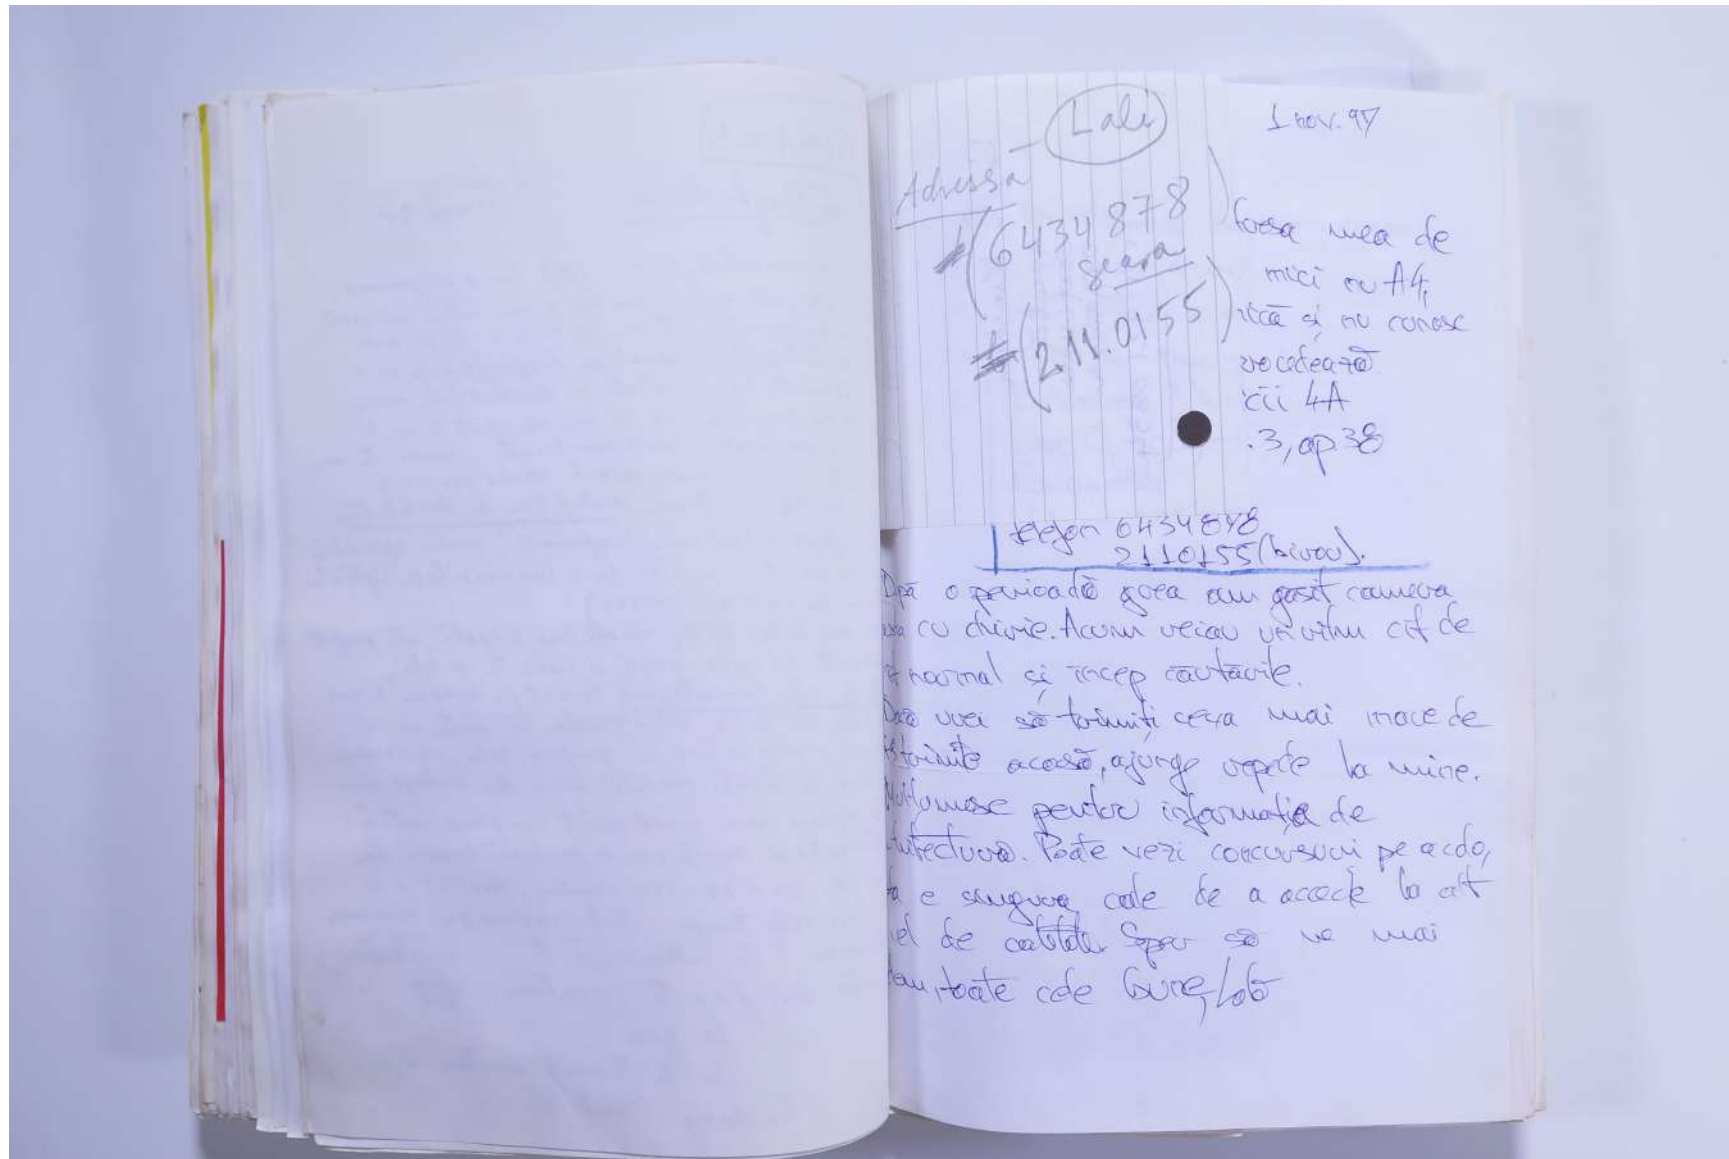 Lali
Adressa
(6434878)
seara
(2.11.0155)
1 nov. 97
mea de
mici cu A4,
și nu cunosc
4A
.3, ap. 38
telefon 6434878
2110155 (birou).
După o perioadă grea am găsit camera
cu chirie. Acum reiau un ritm cît de
normal și încep căutările.
Dacă vrei să trimiți ceva mai încoace de
trimite acasă, ajunge repede la mine.
Mulțumesc pentru informația de
Poate vezi concursuri pe acolo,
e singura cale de a accede la alt
de calitate. Sper să ne mai
toate cele bune, Lali